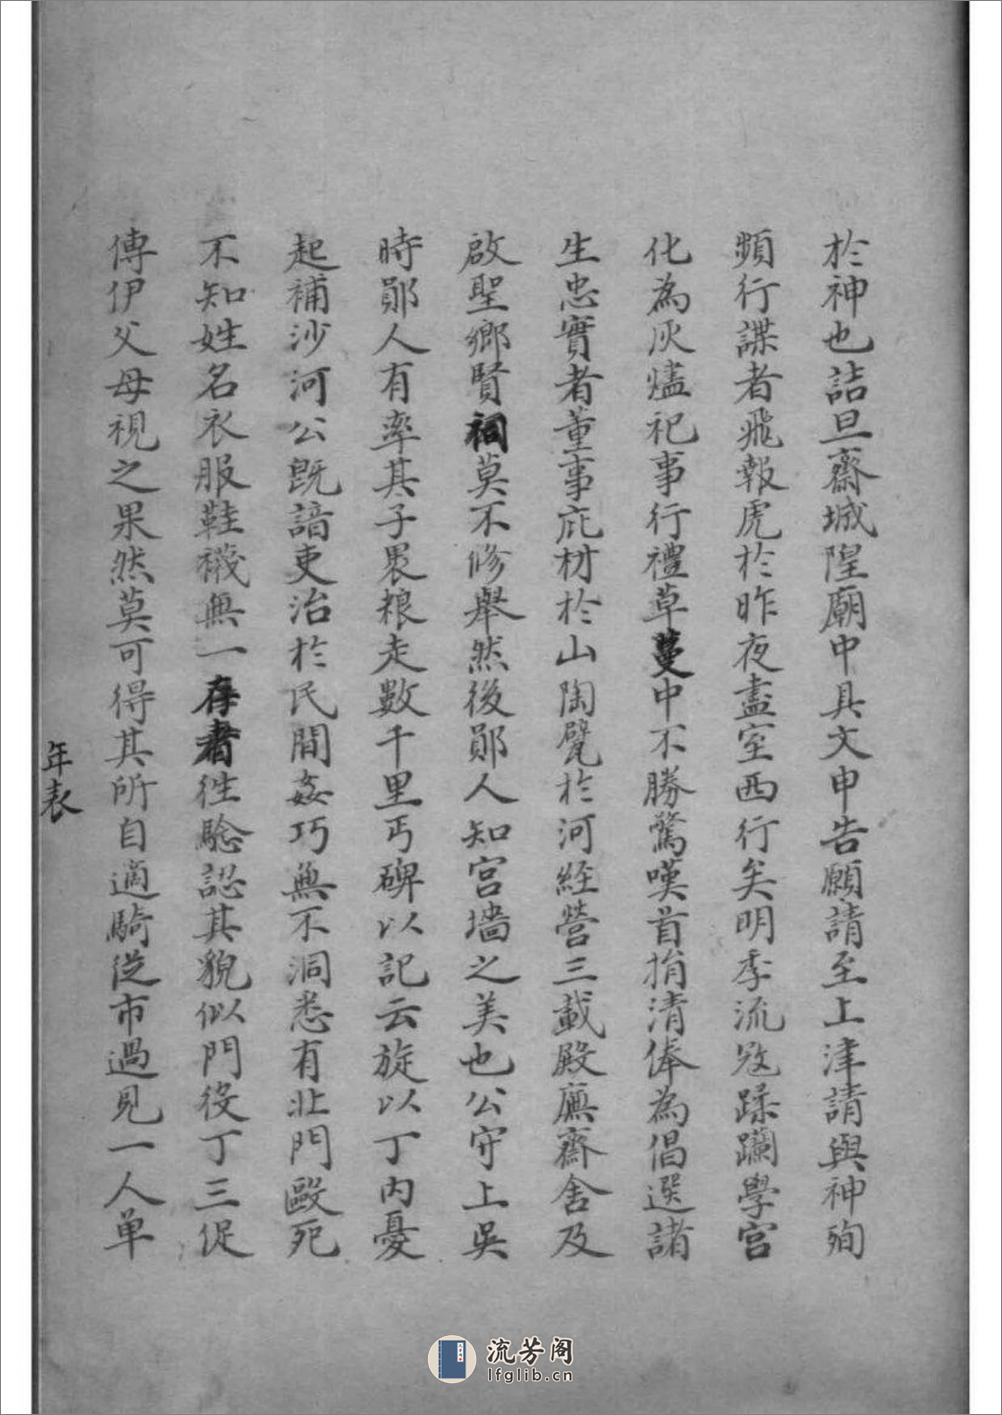 於神也詰旦齋城隍廟中具文申告願請至上津請與神殉
頻行諜者飛報虎於昨夜盡室西行矣明季流寇蹂躪學宮
化為灰燼祀事行禮草蔓中不勝驚嘆首捐清俸為倡選諸
生忠實者董事庀材於山陶甓於河經營三載殿廡齋舍及
啟聖鄉賢祠莫不修舉然後鄖人知宮墻之美也公守上吳
時鄖人有率其子褁粮走數千里丐碑以記云旋以丁內憂
起補沙河公既諳吏治於民間姦巧無不洞悉有北門毆死
不知姓名衣服鞋襪無一存者徃驗認其貌似門役丁三促
傳伊父母視之果然莫可得其所自適騎從市過見一人单
年表
流芳阁
lfglib.cn